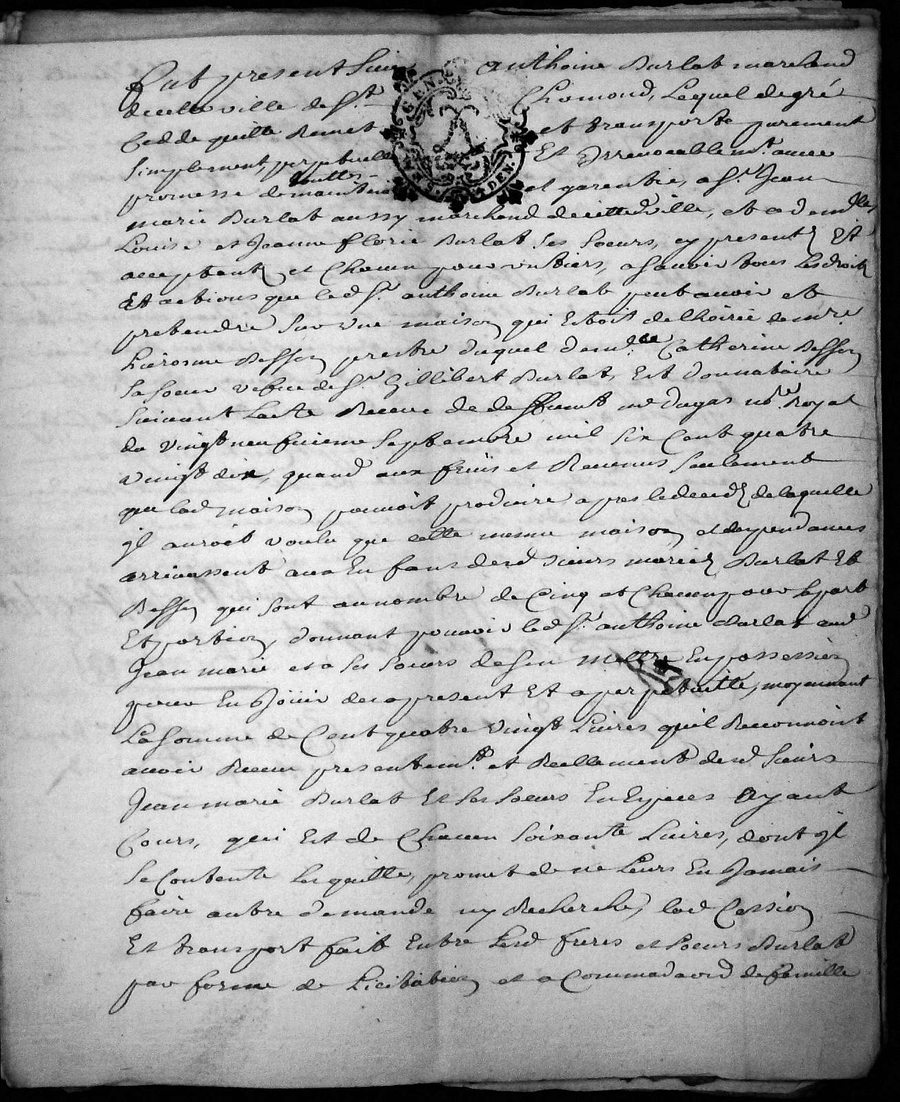 fut present Sieur anthoine Burlat marchand
de cette ville de St Chomond, Lequel de gré
Cedde quitte Remet et transporte purement
Simplement, perpetuelle Et Irrevocablem.t avec
promesse de maintenir touttes et garentie, a Sr. Jean
marie Burlat aussy marchand de cette ville, et a dem.lles
Louise et Jeanne florie Burlat Ses Soeurs, cy presents Et
acceptants et Chacun pour un tiers, a Scavoir tous Les droits
Et actions que led. Sr. anthoine Burlat peut avoir et
pretendre Sur une maison qui Etoit de lhoirie de mre.
hierosme Besson prestre duquel dem.lle Catherine Besson
Sa Soeur vefve de Sr. Gillibert Burlat, Est donnataire
Suivant Lacte Receu de deffunt me dugas nre. Royal
du Vingt neufvieme Septembre mil Six Cent quatre
vingt dix, quand aux fruis et Revenus Seulement
que lad. maison pouvoit produire apres le deceds de laquelle
jl auroit voulu que cette mesme maison et dependances
arrivassent aux Enfans desd. Sieurs mariés Burlat Et
Besson qui sont au nombre de Cinq et Chacun pour Sa part
Et portion, donnant pouvoir led. Sr. anthoine Burlat aud.
Jean marie et a Ses Soeurs de Sen mettre En possession
pour En Jouir des a present Et a perpetuitte, moyennant
La Somme de Cent quatre Vingt Livres qu'il Reconnoit
avoir Receu presentem.t et Reellement desd. Sieurs
Jean marie Burlat Et Ses Soeurs En Especes Ayant
Cours, qui Est de Chacun Soixante Livres, dont jl
Se Contente Les quitte, promet de ne Leurs En Jamais
faire autre demande ny Recherche, lad. Cession
Et transport fait Entre Lesd. freres et Soeurs Burlat
par forme de Licitation et acommodement de famille
GEN.
DEN.